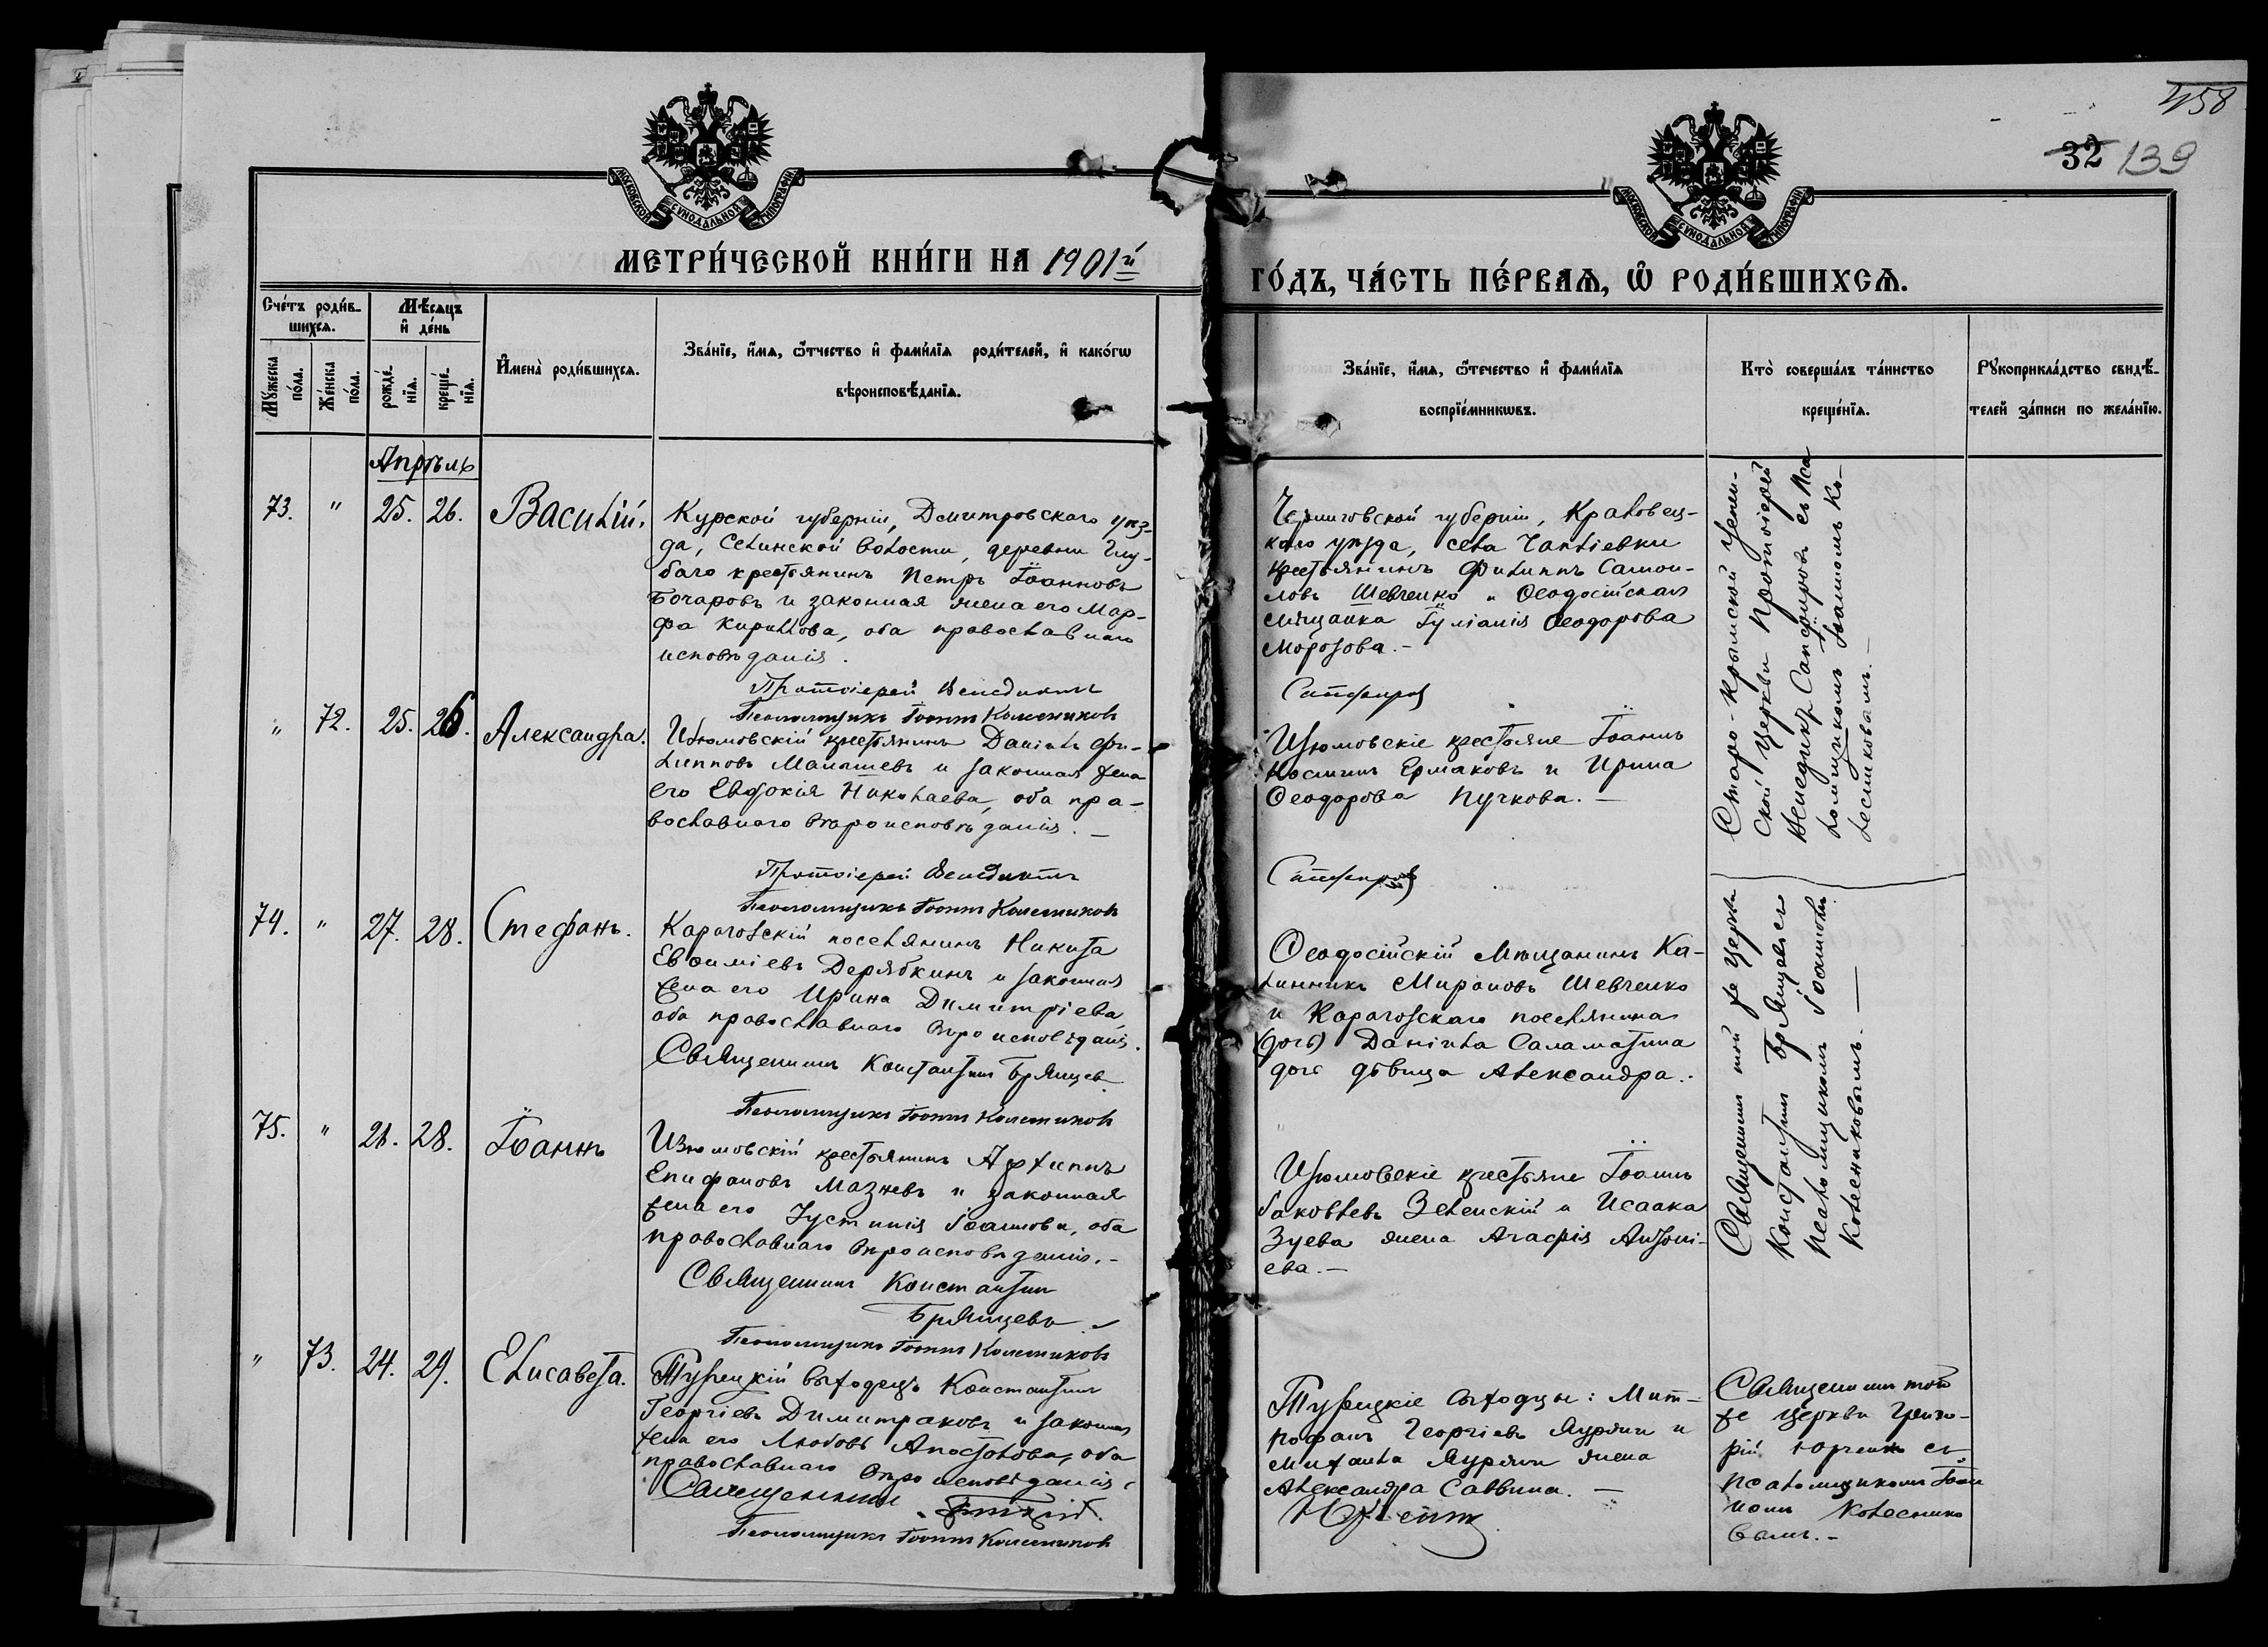 458
32 139
МОСКОВСКОЙ СѴНОДАЛЬНОЙ ТИПОГРАФІИ
МОСКОВСКОЙ СѴНОДАЛЬНОЙ ТИПОГРАФІИ
МЕТРИ́ЧЕСКОЙ КНИ́ГИ НА 1901й
ГО́ДЪ, ЧА́СТЬ ПЕ́РВАѦ, Ѡ҆ РОДИ́ВШИХСѦ.
Сче́тъ роди́в-
шихсѧ.
Мѣ́сѧцъ
и҆ де́нь
Мꙋ́жеска
по́ла.
Же́нска
по́ла.
рожде́-
нїѧ.
креще́-
нїѧ.
И҆мена̀ роди́вшихсѧ.
Зва́нїе, и҆́мѧ, ѻ҆́тчество и҆ фами́лїѧ роди́телей, и҆ како́гѡ
вѣроисповѣ́данїѧ.
Зва́нїе, и҆́мѧ, ѻ҆́течество и҆ фами́лїѧ
воспрїе́мникѡвъ.
Кто̀ соверша́лъ та́инство
креще́нїѧ.
Рꙋкоприкла́дство свидѣ́-
телей за́писи по жела́нїю.
Апрѣль
73. " 25. 26. Василій.
Курской губерніи, Дмитровскаго уѣз-
да, Селинской волости, деревни Глу-
баго крестьянинъ Петръ Іоанновъ
Бочаровъ и законная жена его Мар-
фа Кириллова, оба православнаго
исповѣданія.
Протоіерей Венедиктъ
Псаломщикъ Іоаннъ Колесниковъ
Черниговской губерніи, Кралевец-
каго уѣзда, села Чапліевки
крестьянинъ Филиппъ Самои-
ловъ Шевченко и Ѳеодосійская
мѣщанка Іуліанія Ѳеодорова
Морозова.-
Сапфировъ
Старо-Крымской Успен-
ской церкви Протоіерей
Венедиктъ Сапфировъ съ Пса
ломщикомъ Іоанномъ Ко-
лесниковымъ.-
" 72. 25. 26. Александра.
Изюмовскій крестьянинъ Даніилъ Фи-
липповъ Малышевъ и законная жена
его Евдокія Николаева, оба пра-
вославнаго вѣроисповѣданія.-
Протоіерей Венедиктъ
Псаломщикъ Іоаннъ Колесниковъ
Изюмовскіе крестьяне Іоаннъ
Ермаковъ и Ирина
Ѳеодорова Пучкова.-
Сапфировъ
74. " 27. 28. Стефанъ.
Карагозскій поселянинъ Никита
Евѳиміевъ Дерябкинъ и законная
жена его Ирина Димитріева,
оба православнаго вѣроисповѣданія.
Священникъ Константинъ Брянцев.
Псаломщикъ Іоаннъ Колесниковъ
Ѳеодосійскій мѣщанинъ Ка-
линникъ Мироновъ Шевченко
и Карагозскаго поселянина
(дочь) Даніила Саламатина
дочь дѣвица Александра.
Священникъ той же церкви
Константинъ Брянцевъ съ
псаломщикомъ Іоанновъ
Колесниковымъ.-
75. " 28. Іоаннъ
Изюмовскій крестьянинъ Архиппъ
Епифановъ Мазневъ и законная
жена его Іустинія Іоаннова, оба
православнаго вѣроисповѣданія.-
Священникъ Константинъ
Брянцевъ.
Псаломщикъ Іоаннъ Колесниковъ
Изюмовскіе крестьяне Іоаннъ
Іаковлевъ Зеленскій и Исаака
Зуева жена Агафія Антоні-
ева.-
" 73. 24. 29. Елисавета.
Турецкій выходецъ Константинъ
Георгіевъ Димитраковъ и законная
жена его Любовь Апостолова, оба
православнаго вѣроисповѣданія.
Священникъ
Псаломщикъ Іоаннъ Колесниковъ
Турецкіе выходцы: Мит-
рофанъ Георгіевъ Яурджи и
Михаила Яурджи жена
Александра Саввина.-
Юрченко
Священникъ той
же церкви Григо-
рій Юрченко съ
псаломщикомъ Іоан
номъ Колеснико
вымъ.-